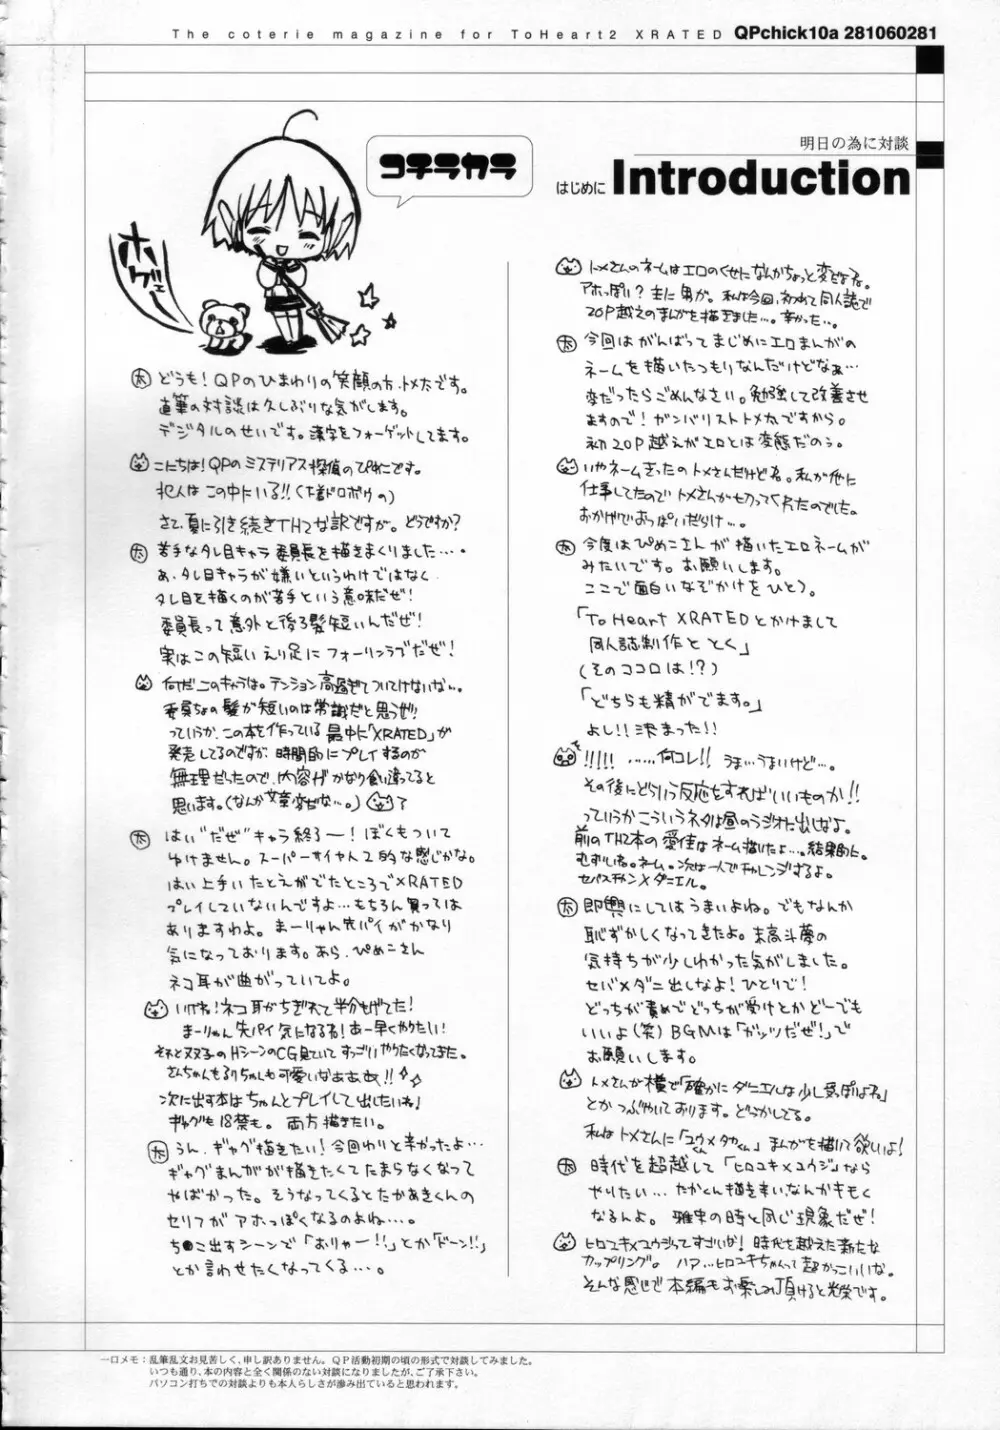 The coterie magazine for ToHeart2 XRATED QPchick10a 281060281
明日の為に対談
はじめに Introduction
コチラカラ
ホゲェ
太 どうも！QPのひまわりの笑顔の方、トメ太です。
直筆の対談は久しぶりな気がします。
デジタルのせいです。漢字をフォーゲットしてます。
こにちは！QPのミステリアス探偵のぴめこです。
犯人はこの中にいる!!（下着ドロボウの）
さて、夏に引き続きTH2な訳ですが。どうですか？
太 苦手なタレ目キャラ委員長を描きまくりました…。
あ、タレ目キャラが嫌いというわけではなく
タレ目を描くのが苦手という意味だぜ！
委員長って意外と後ろ髪短いんだぜ！
実はこの短いえり足にフォーリンラブだぜ！
何だこのキャラは。テンション高過ぎてついてけないな…。
委員ちょの髪が短いのは常識だと思うぜ!!
っていうか、この本を作っている最中に「XRATED」が
発売してるのですが、時間的にプレイするのが
無理だったので、内容がかなり食い違ってると
思います。（なんか文章変だな…。）
太 はい“だぜ”キャラ終了ー！ぼくもついて
ゆけません。スーパーサイヤ人2的な感じかな。
はい上手いたとえがでたところでXRATED
プレイしていないんですよ…もちろん買っては
ありますわよ。まーりゃん先パイがかなり
気になっております。あら、ぴめこさん
ネコ耳が曲がっていてよ。
いけね！ネコ耳がちぎれて半分もげてた！
まーりゃん先パイ気になるね！あー早くやりたい！
それと双子のHシーンのCG見ていてすっごいやりたくなってきた。
さんちゃんもるりちゃんも可愛いなぁぁぁぁ!!
次に出す本はちゃんとプレイして出したいね！
ギャグも18禁も。両方描きたい。
太 うん、ギャグ描きたい！今回わりと辛かったよ…
ギャグまんがが描きたくてたまらなくなって
やばかった。そうなってくるとたかあきくんの
セリフがアホっぽくなるのよね…。
ち●こ出すシーンで「おりゃー!!」とか「ドーン!!」
とか言わせたくなってくる…。
トメさんのネームはエロのくせになんかちょっと変だよね。
アホっぽい？主に男が。私は今回、初めて同人誌で
20P越えのまんがを描きました…。辛かった…。
太 今回はがんばってまじめにエロまんがの
ネームを描いたつもりなんだけどなぁ…
変だったらごめんなさい。勉強して改善させ
ますので！ガンバリストトメ太ですから。
初20P越えがエロとは変態だのぅ。
いやネームきったのトメさんだけどね。私が他に
仕事してたのでトメさんが切ってくれたのでした。
おかげでおっぱいだらけ…。
太 今度はぴめこさんが描いたエロネームが
みたいです。お願いします。
ここで面白いなぞかけをひとつ。
「To Heart XRATEDとかけまして
同人誌制作ととく」
（そのココロは！？）
「どちらも精がでます。」
よし!!決まった!!
!!!!! ……何コレ!! うま…うまいけど…。
その後にどういう反応をすればいいものか!!
っていうかこういうネタは昼のラジオに出しなよ。
前のTH2本の愛佳はネーム描けたよ…。結果的に。
むずいね。ネーム。次は一人でチャレンジするよ。
セバスチャン×ダニエル。
太 即興にしてはうまいよね。でもなんか
恥ずかしくなってきたよ。末高斗夢の
気持ちが少しわかった気がしました。
セバ×ダニ出しなよ！ひとりで！
どっちが責めでどっちが受けとかどーでも
いいよ（笑）BGMは「ガッツだぜ！」で
お願いします。
トメさんが横で「確かにダニエルは少し受っぽいよね」
とかつぶやいております。どうかしてる。
私はトメさんに「ユウくん×タカくん」まんがを描いて欲しいよ！
太 時代を超越して「ヒロユキ×ユウジ」なら
やりたい…たかくん描き辛い、なんかキモく
なるんよ。雅史の時と同じ現象だぜ！
ヒロユキ×ユウジってすごいな！時代を越えた新たな
カップリング。ハァ…ヒロユキちゃんって超かっこいいな。
そんな感じで本編もお楽しみ頂けると光栄です。
一口メモ：乱筆乱文お見苦しく、申し訳ありません。QP活動初期の頃の形式で対談してみました。
いつも通り、本の内容と全く関係のない対談になりましたが、ご了承下さい。
パソコン打ちでの対談よりも本人らしさが滲み出ていると思われます。